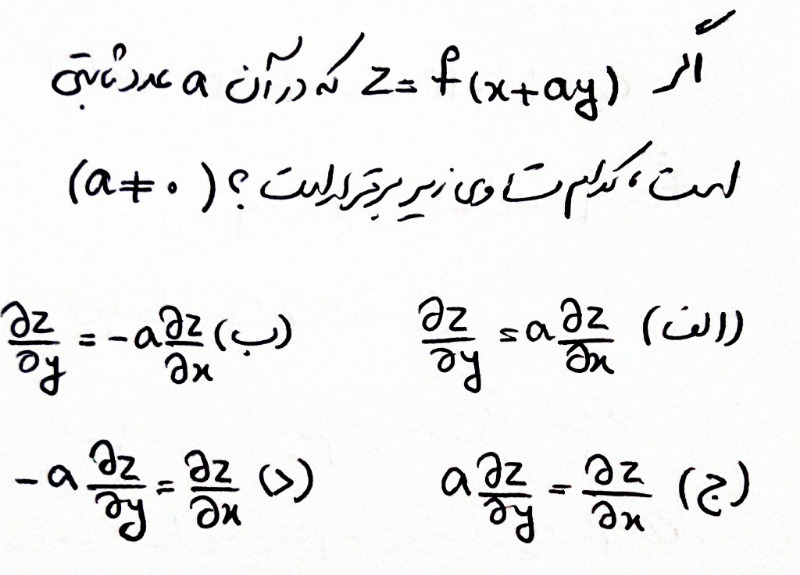 اگر z = f(x+ay) که در آن a عدد ثابتی
است، کدام تساوی زیر برقرار است؟ (a ≠ ۰)
الف) ∂z/∂y = a ∂z/∂x ب) ∂z/∂y = -a ∂z/∂x
ج) a ∂z/∂y = ∂z/∂x د) -a ∂z/∂y = ∂z/∂x